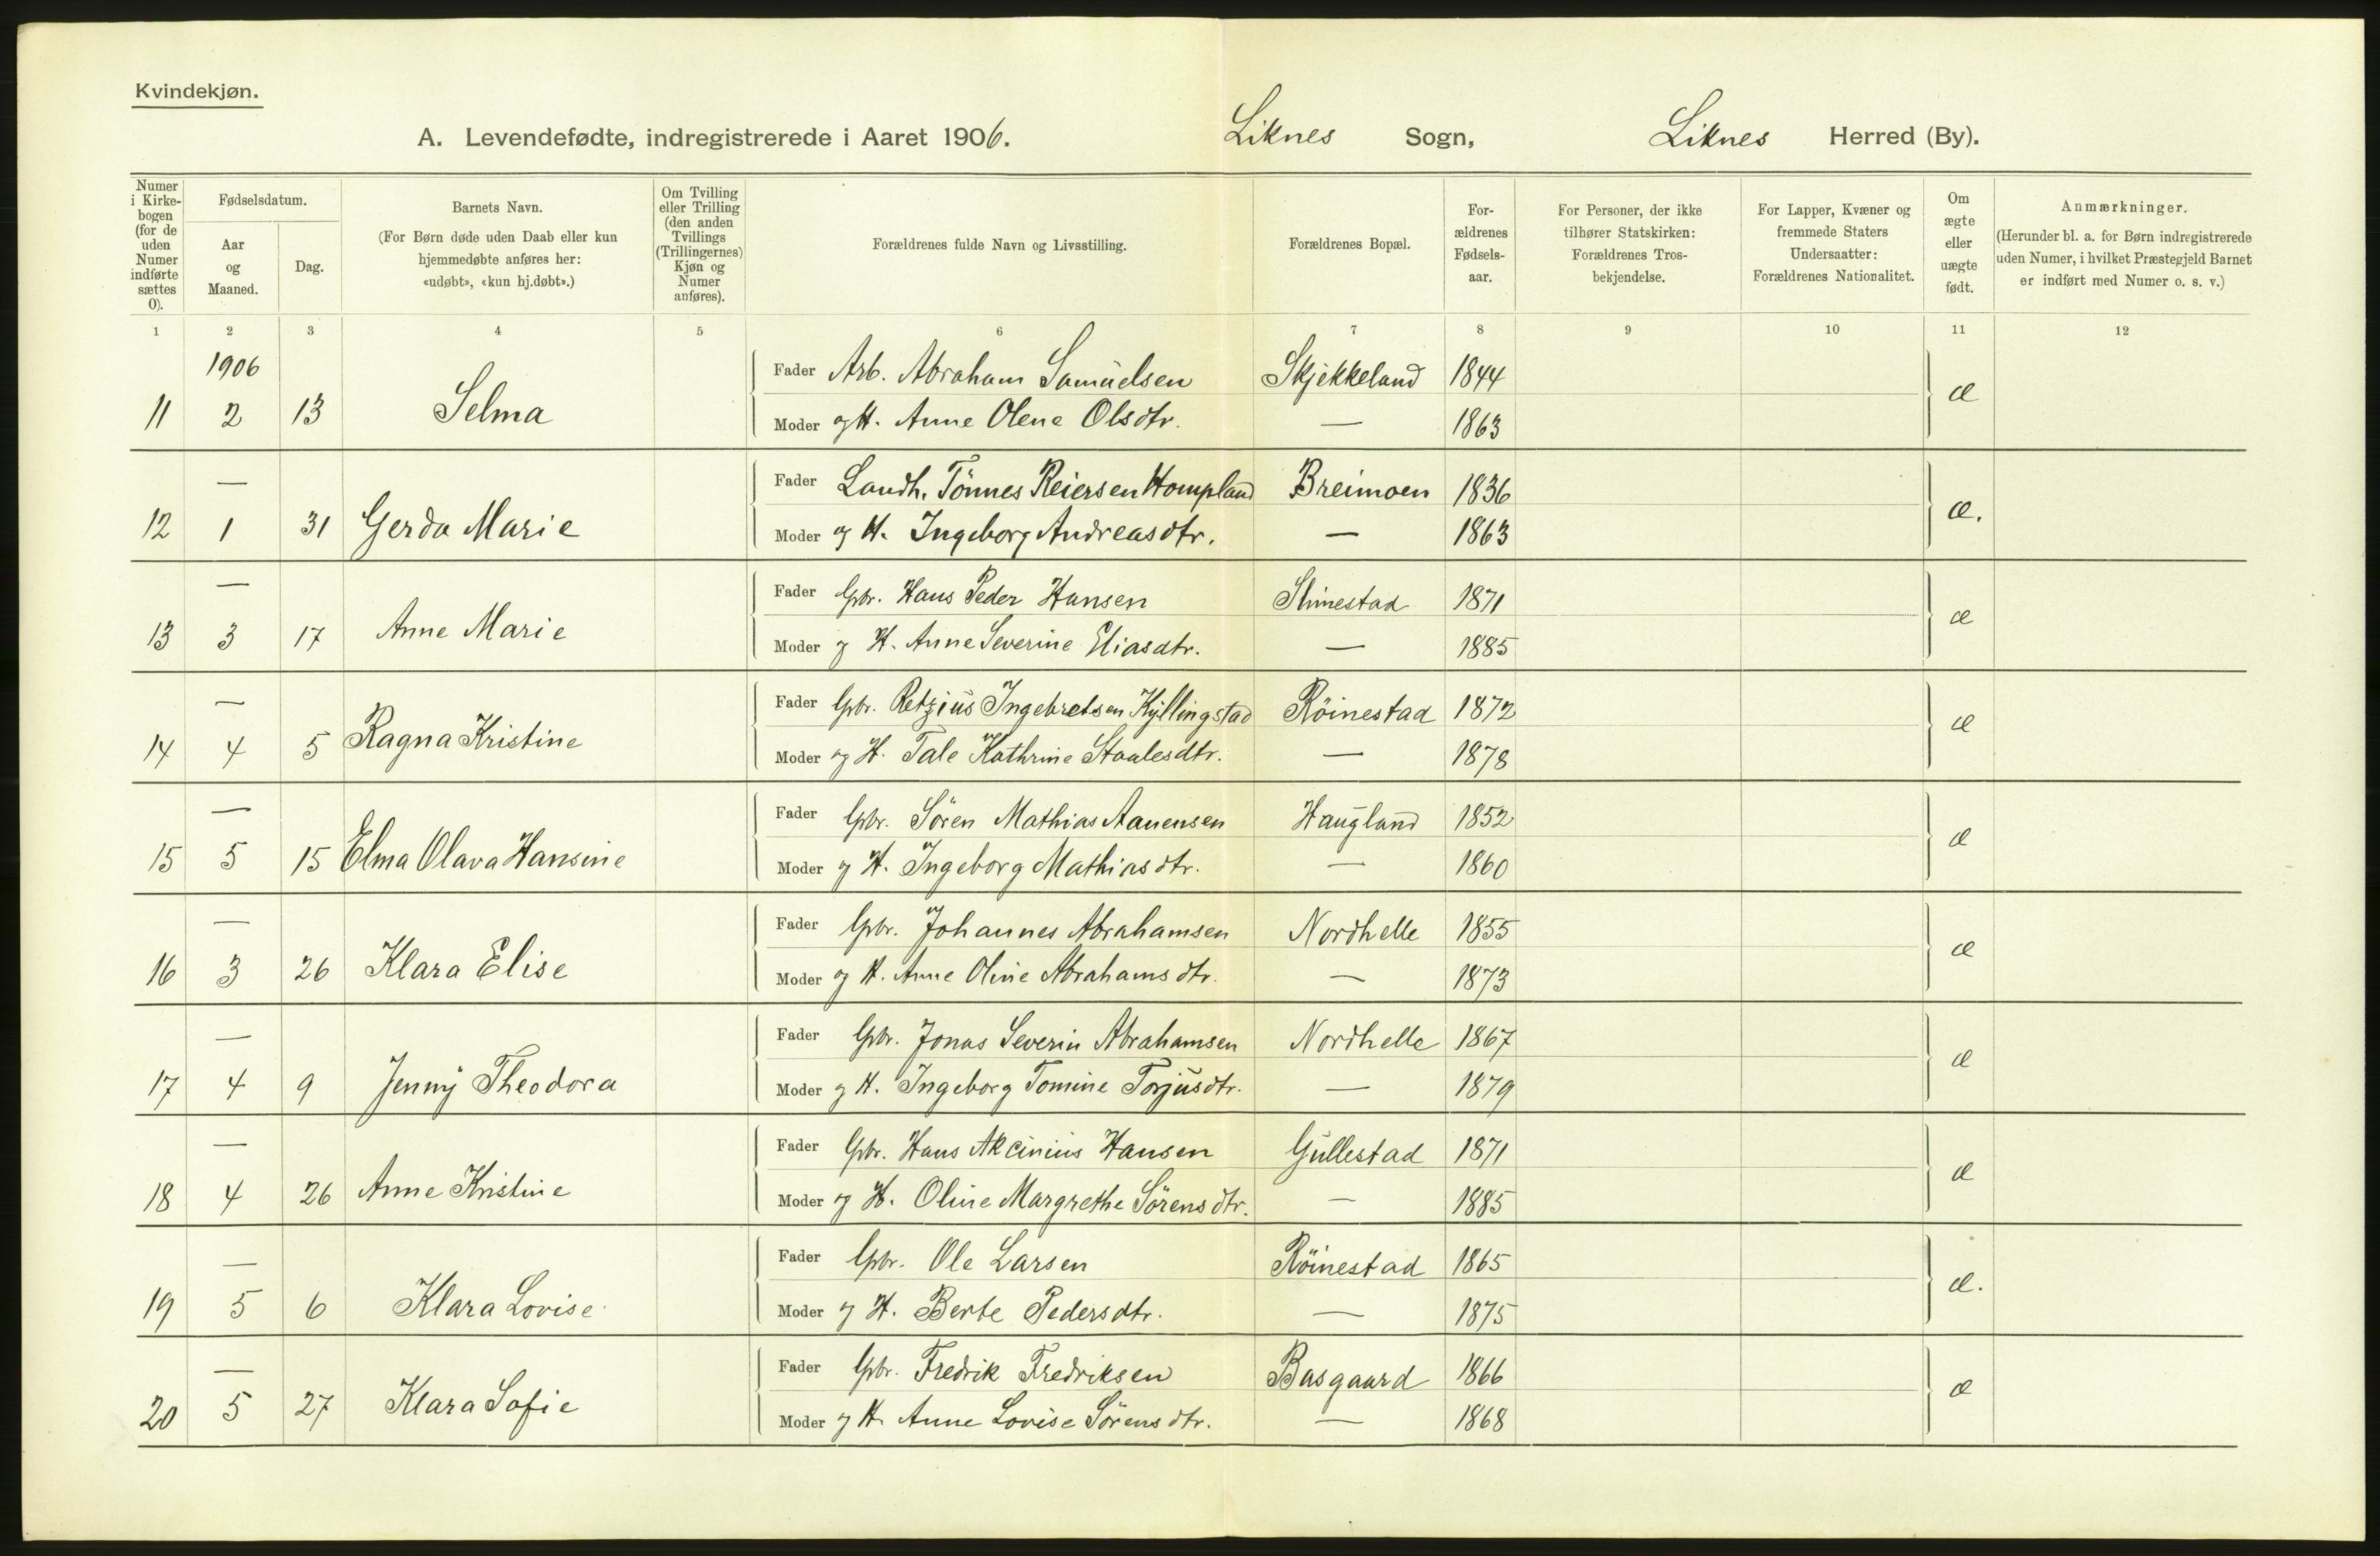 Kvindekjøn.
A. Levendefødte, indregistrerede i Aaret 1906. Liknes Sogn, Liknes Herred (By).
Numer i Kirke-bogen (for de uden Numer indførte sættes 0).
Fødselsdatum.
Aar og Maaned.
Dag.
Barnets Navn.
(For Børn døde uden Daab eller kun hjemmedøbte anføres her: «udøbt», «kun hj.døbt».)
Om Tvilling eller Trilling (den anden Tvillings (Trillingernes) Kjøn og Numer anføres).
Forældrenes fulde Navn og Livsstilling.
Forældrenes Bopæl.
For-ældrenes Fødsels-aar.
For Personer, der ikke tilhører Statskirken: Forældrenes Tros-bekjendelse.
For Lapper, Kvæner og fremmede Staters Undersaatter: Forældrenes Nationalitet.
Om ægte eller uægte født.
Anmærkninger.
(Herunder bl. a. for Børn indregistrerede uden Numer, i hvilket Præstegjeld Barnet er indført med Numer o. s. v.)
1 2 3 4 5 6 7 8 9 10 11 12
1906
Fader Arb. Abraham Samuelsen Skjekkeland 1844
11 2 13 Selma æ
Moder og H. Anne Olene Olsdtr. — 1863
— Fader Landh. Tönnes Reiersen Hompland Breimoen 1836
12 1 31 Gerda Marie æ.
Moder og H. Ingeborg Andreasdtr. — 1863
— Fader Gbr. Hans Peder Hansen Slimestad 1871
13 3 17 Anne Marie æ
Moder og H. Anne Severine Eliasdtr. — 1885
— Fader Gbr. Retzius Ingebretsen Kyllingstad Röinestad 1872
14 4 5 Ragna Kristine æ
Moder og H. Tale Kathrine Staalesdtr. — 1878
— Fader Gbr. Sören Mathias Aanensen Haugland 1852
15 5 15 Elma Olava Hansine æ
Moder og H. Ingeborg Mathiasdtr. — 1860
— Fader Gbr. Johannes Abrahamsen Nordhelle 1855
16 3 26 Klara Elise æ
Moder og H. Anne Oline Abrahamsdtr. — 1873
— Fader Gbr. Jonas Severin Abrahamsen Nordhelle 1867
17 4 9 Jenny Theodora æ
Moder og H. Ingeborg Tomine Torjusdtr. — 1879
— Fader Gbr. Hans Akcinius Hansen Gullestad 1871
18 4 26 Anne Kristine æ
Moder og H. Oline Margrethe Sörensdtr. — 1885
— Fader Gbr. Ole Larsen Röinestad 1865
19 5 6 Klara Lovise æ.
Moder og H. Berte Pedersdtr. — 1875
— Fader Gbr. Fredrik Fredriksen Basgaard 1866
20 5 27 Klara Sofie æ
Moder og H. Anne Lovise Sörensdtr. — 1868